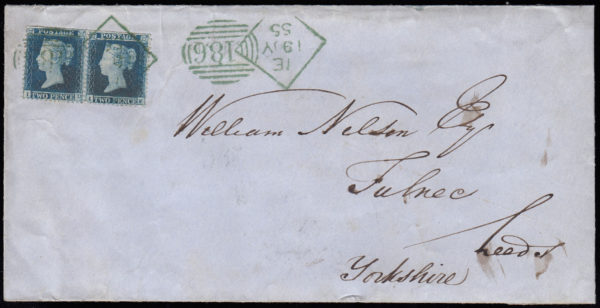 POSTAGE POSTAGE
TWO PENCE TWO PENCE
186
IE
19 JY
55
William Nelson Esq
Fulnec
Leeds
Yorkshire